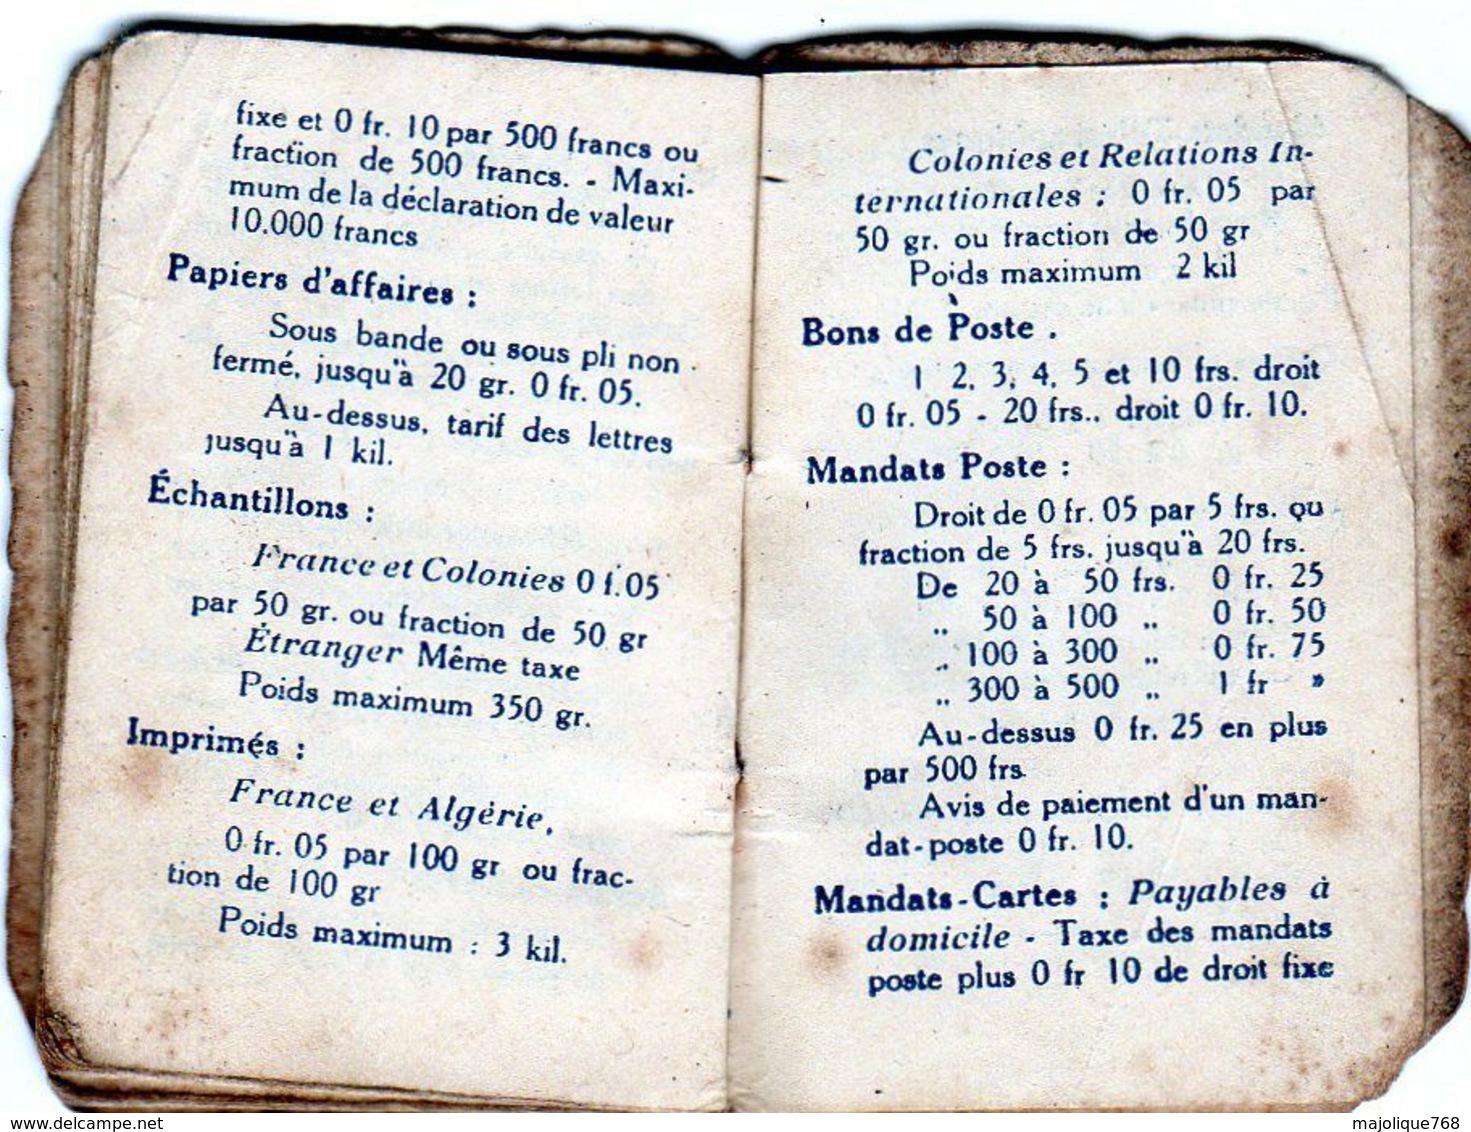 fixe et 0 fr. 10 par 500 francs ou
fraction de 500 francs. - Maxi-
mum de la déclaration de valeur
10.000 francs
Papiers d'affaires :
Sous bande ou sous pli non
fermé, jusqu'à 20 gr. 0 fr. 05.
Au-dessus, tarif des lettres
jusqu'à 1 kil.
Échantillons :
France et Colonies 0 f. 05
par 50 gr. ou fraction de 50 gr
Étranger Même taxe
Poids maximum 350 gr.
Imprimés :
France et Algérie,
0 fr. 05 par 100 gr ou frac-
tion de 100 gr
Poids maximum : 3 kil.
Colonies et Relations In-
ternationales : 0 fr. 05 par
50 gr. ou fraction de 50 gr
Poids maximum 2 kil
Bons de Poste .
1 2, 3, 4, 5 et 10 frs. droit
0 fr. 05 - 20 frs.. droit 0 fr. 10.
Mandats Poste :
Droit de 0 fr. 05 par 5 frs. ou
fraction de 5 frs. jusqu'à 20 frs.
De 20 à 50 frs. 0 fr. 25
„ 50 à 100 „ 0 fr. 50
„ 100 à 300 „ 0 fr. 75
„ 300 à 500 „ 1 fr »
Au-dessus 0 fr. 25 en plus
par 500 frs.
Avis de paiement d'un man-
dat-poste 0 fr. 10.
Mandats-Cartes : Payables à
domicile - Taxe des mandats
poste plus 0 fr 10 de droit fixe
majolique768